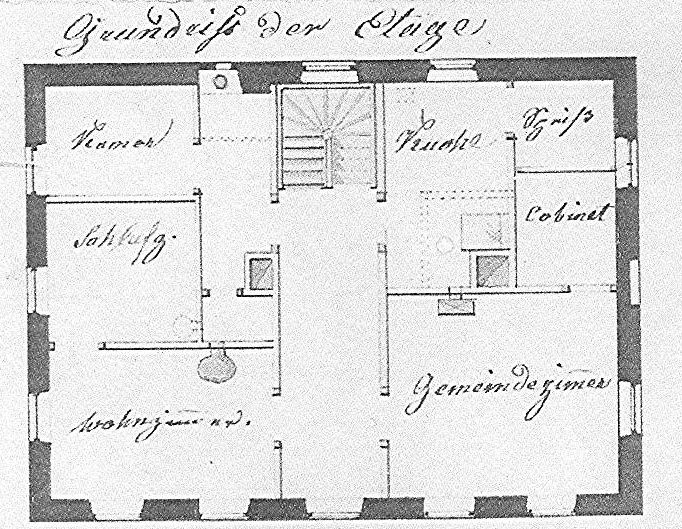 Grundriß der Etage
Kamer
Kuche
Speiß
Cabinet
Schlafz.
Gemeindezim̄er
Wohnzim̄er.